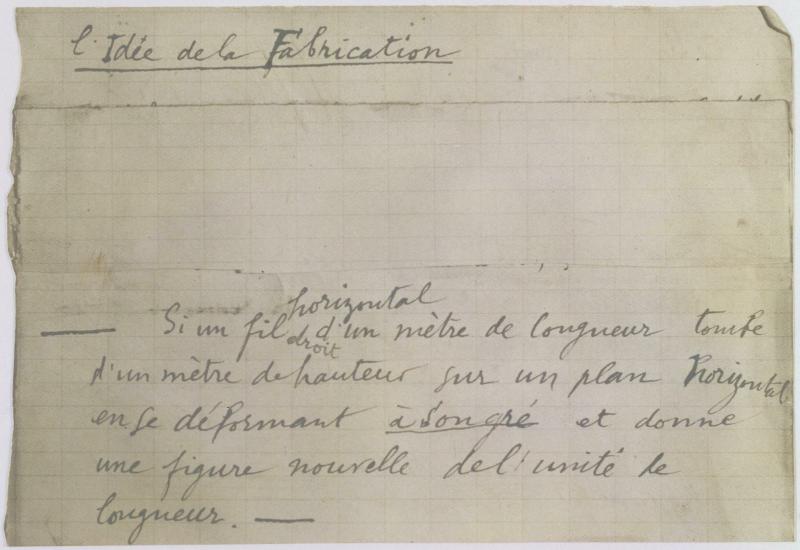 l'Idée de la Fabrication
— Si un fil droit horizontal d'un mètre de longueur tombe
d'un mètre de hauteur sur un plan horizontal
en se déformant à son gré et donne
une figure nouvelle de l'unité de
longueur. —